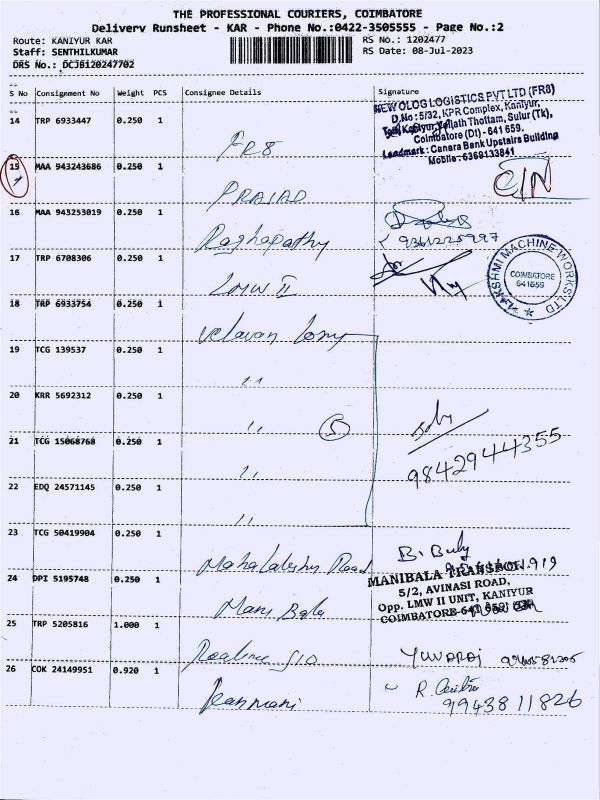 THE PROFESSIONAL COURIERS, COIMBATORE
Delivery Runsheet - KAR - Phone No.:0422-3505555 - Page No.:2
Route: KANIYUR KAR
RS No.: 1202477
Staff: SENTHILKUMAR
RS Date: 08-Jul-2023
DRS No.: DCJ6120247702
S No Consignment No Weight PCS Consignee Details Signature
14 TRP 6933447 0.250 1 FR8
NEW OLOG LOGISTICS PVT LTD (FR8)
D.No: 5/32, KPR Complex, Kaniyur,
Kaniyur, Thottam, Sulur (Tk),
Coimbatore (Dt) - 641 659.
Landmark: Canara Bank Upstairs Building
Mobile: 6369133841
15 MAA 943243686 0.250 1 PRASAD
C/N
16 MAA 943253019 0.250 1 Raghapathy
9361225997
17 TRP 6708306 0.250 1 LMW II
LAKSHMI MACHINE WORKS LTD
COIMBATORE
641659
18 TRP 6933754 0.250 1 Velavan
19 TCG 139537 0.250 1 ,,
20 KRR 5692312 0.250 1 ,, 5
21 TCG 15068768 0.250 1 ,,
9842944355
22 EDQ 24571145 0.250 1 ,,
23 TCG 50419904 0.250 1 Road
B.
24 DPI 5195748 0.250 1 Mani Bala
MANIBALA TRANSPORT
5/2, AVINASI ROAD,
Opp. LMW II UNIT, KANIYUR
COIMBATORE-641 659
25 TRP 5205816 1.000 1
YUVARAJ
26 COK 24149951 0.920 1
R.
9943811826